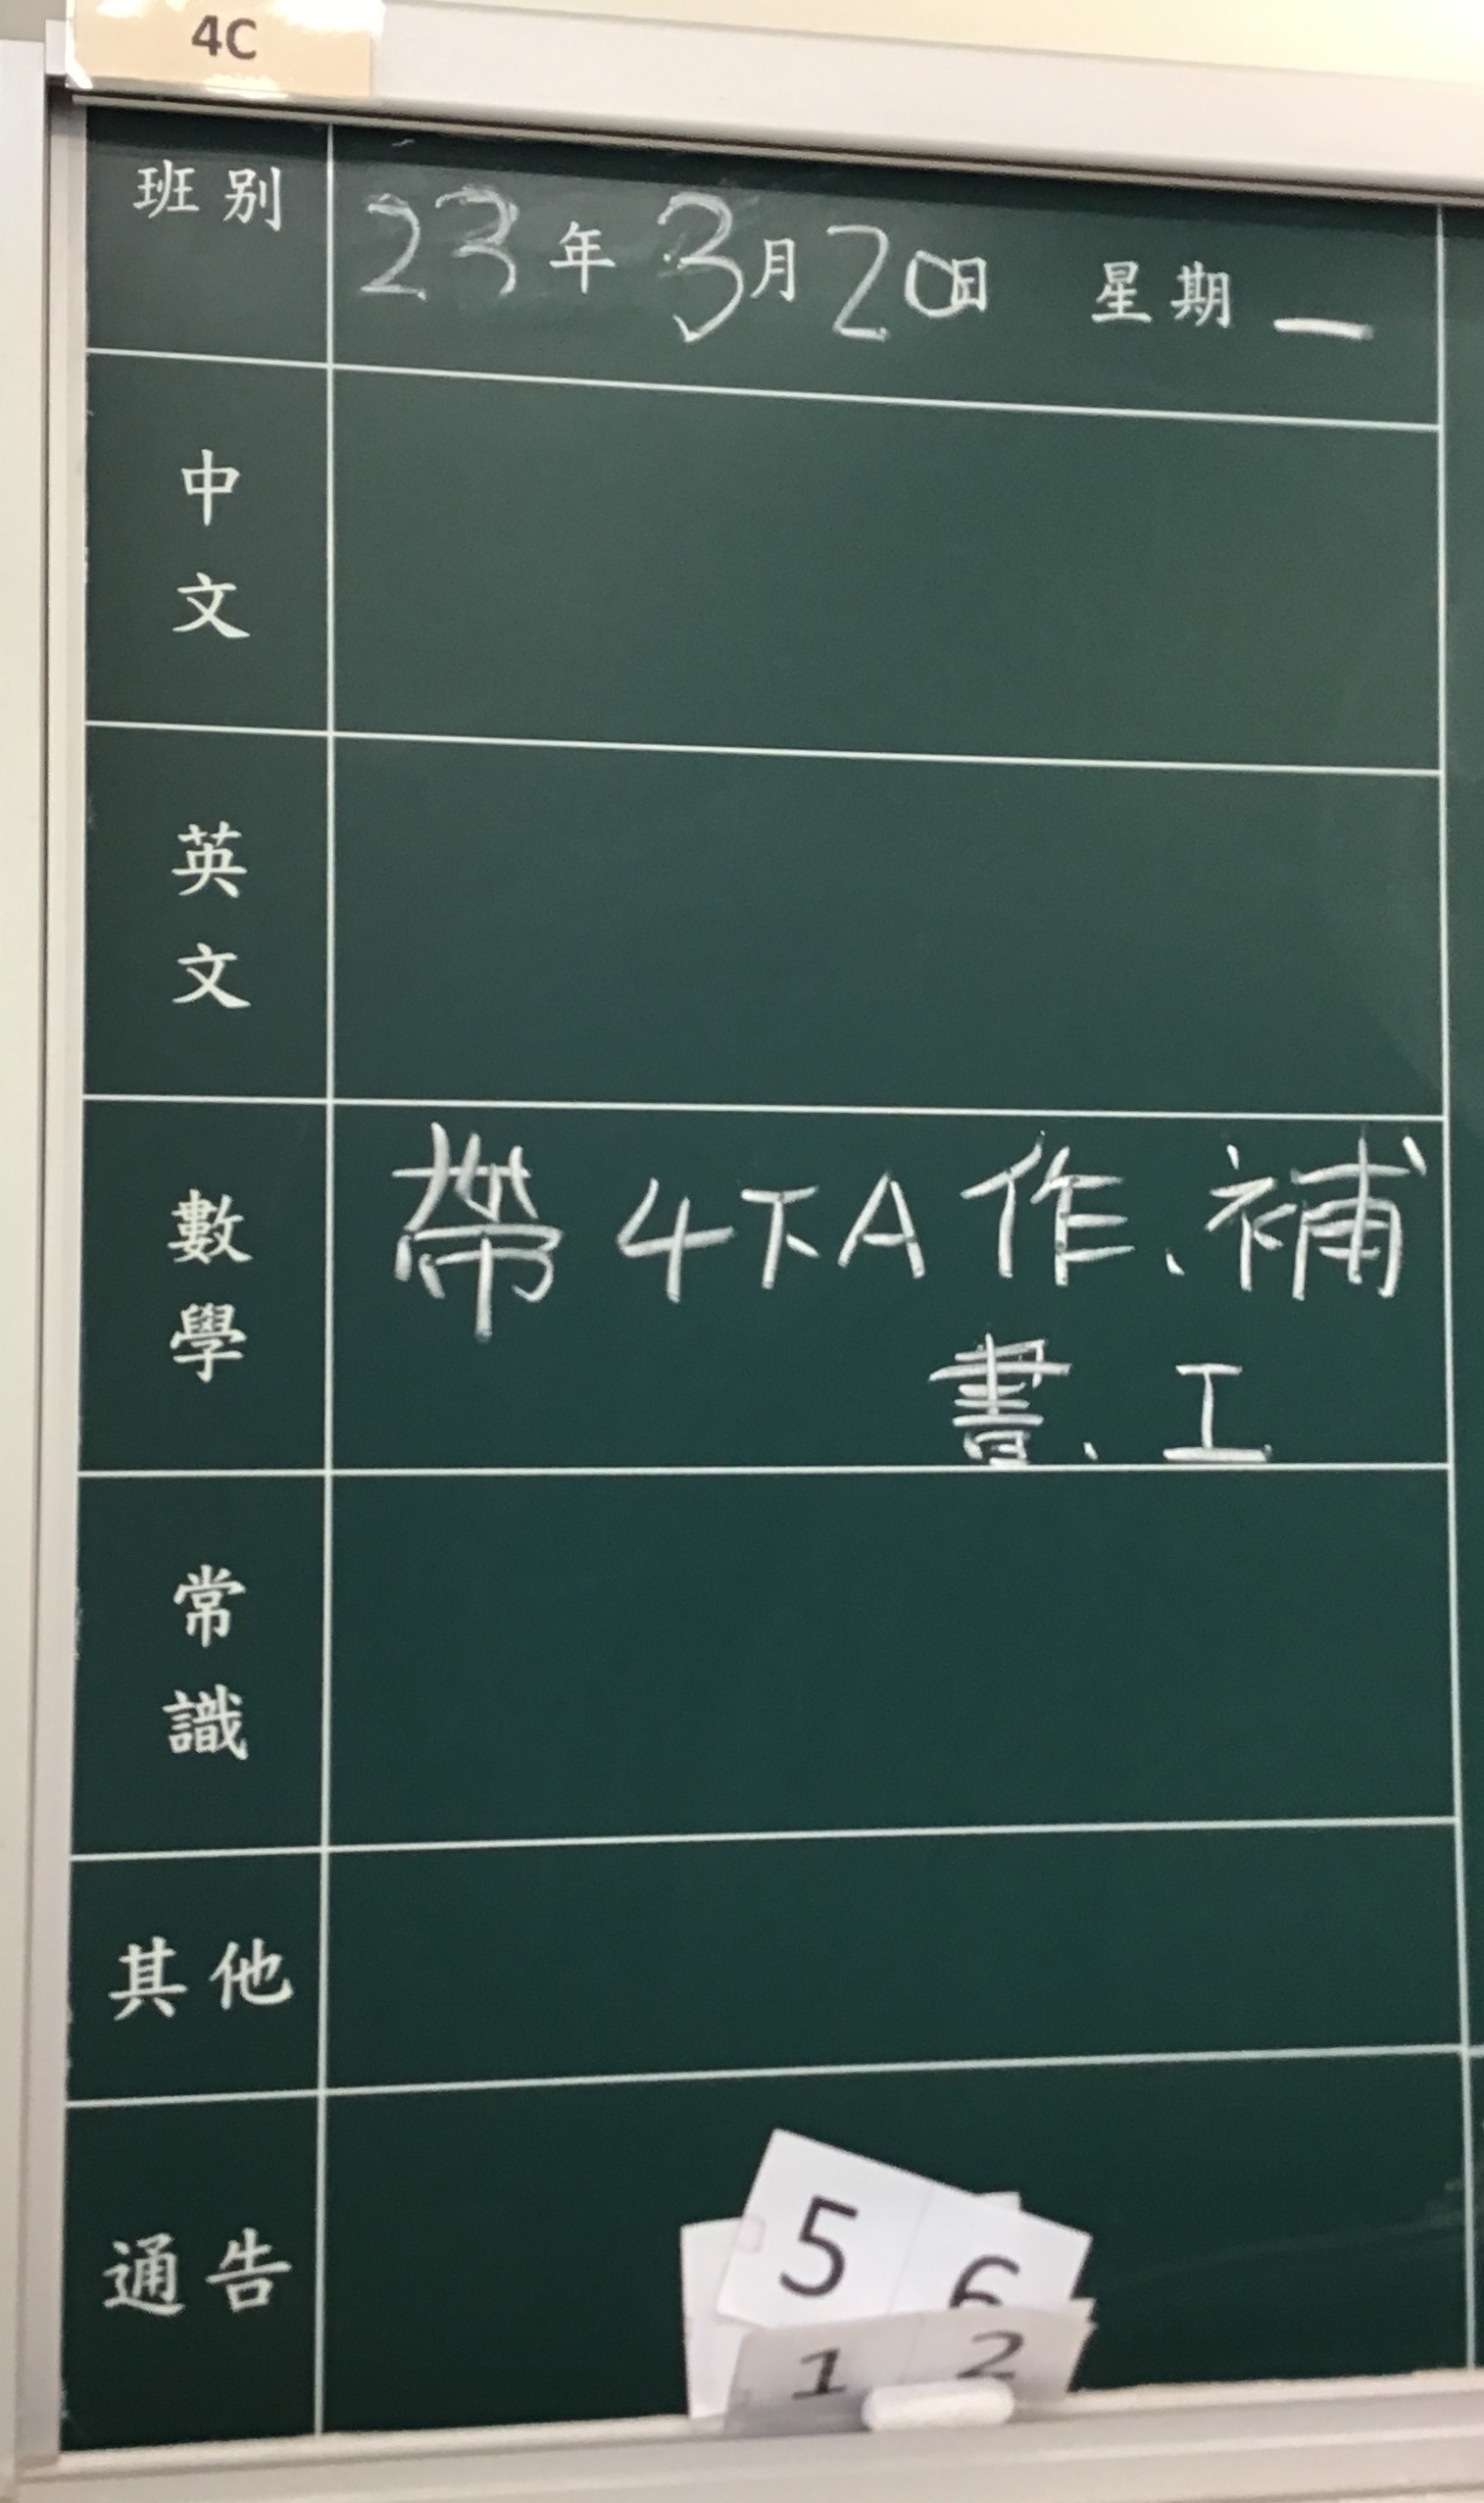 4C
班別 23年3月20日 星期一
中文
英文
數學 帶4下A作、補
書、工
常識
其他
通告
5 6
1 2